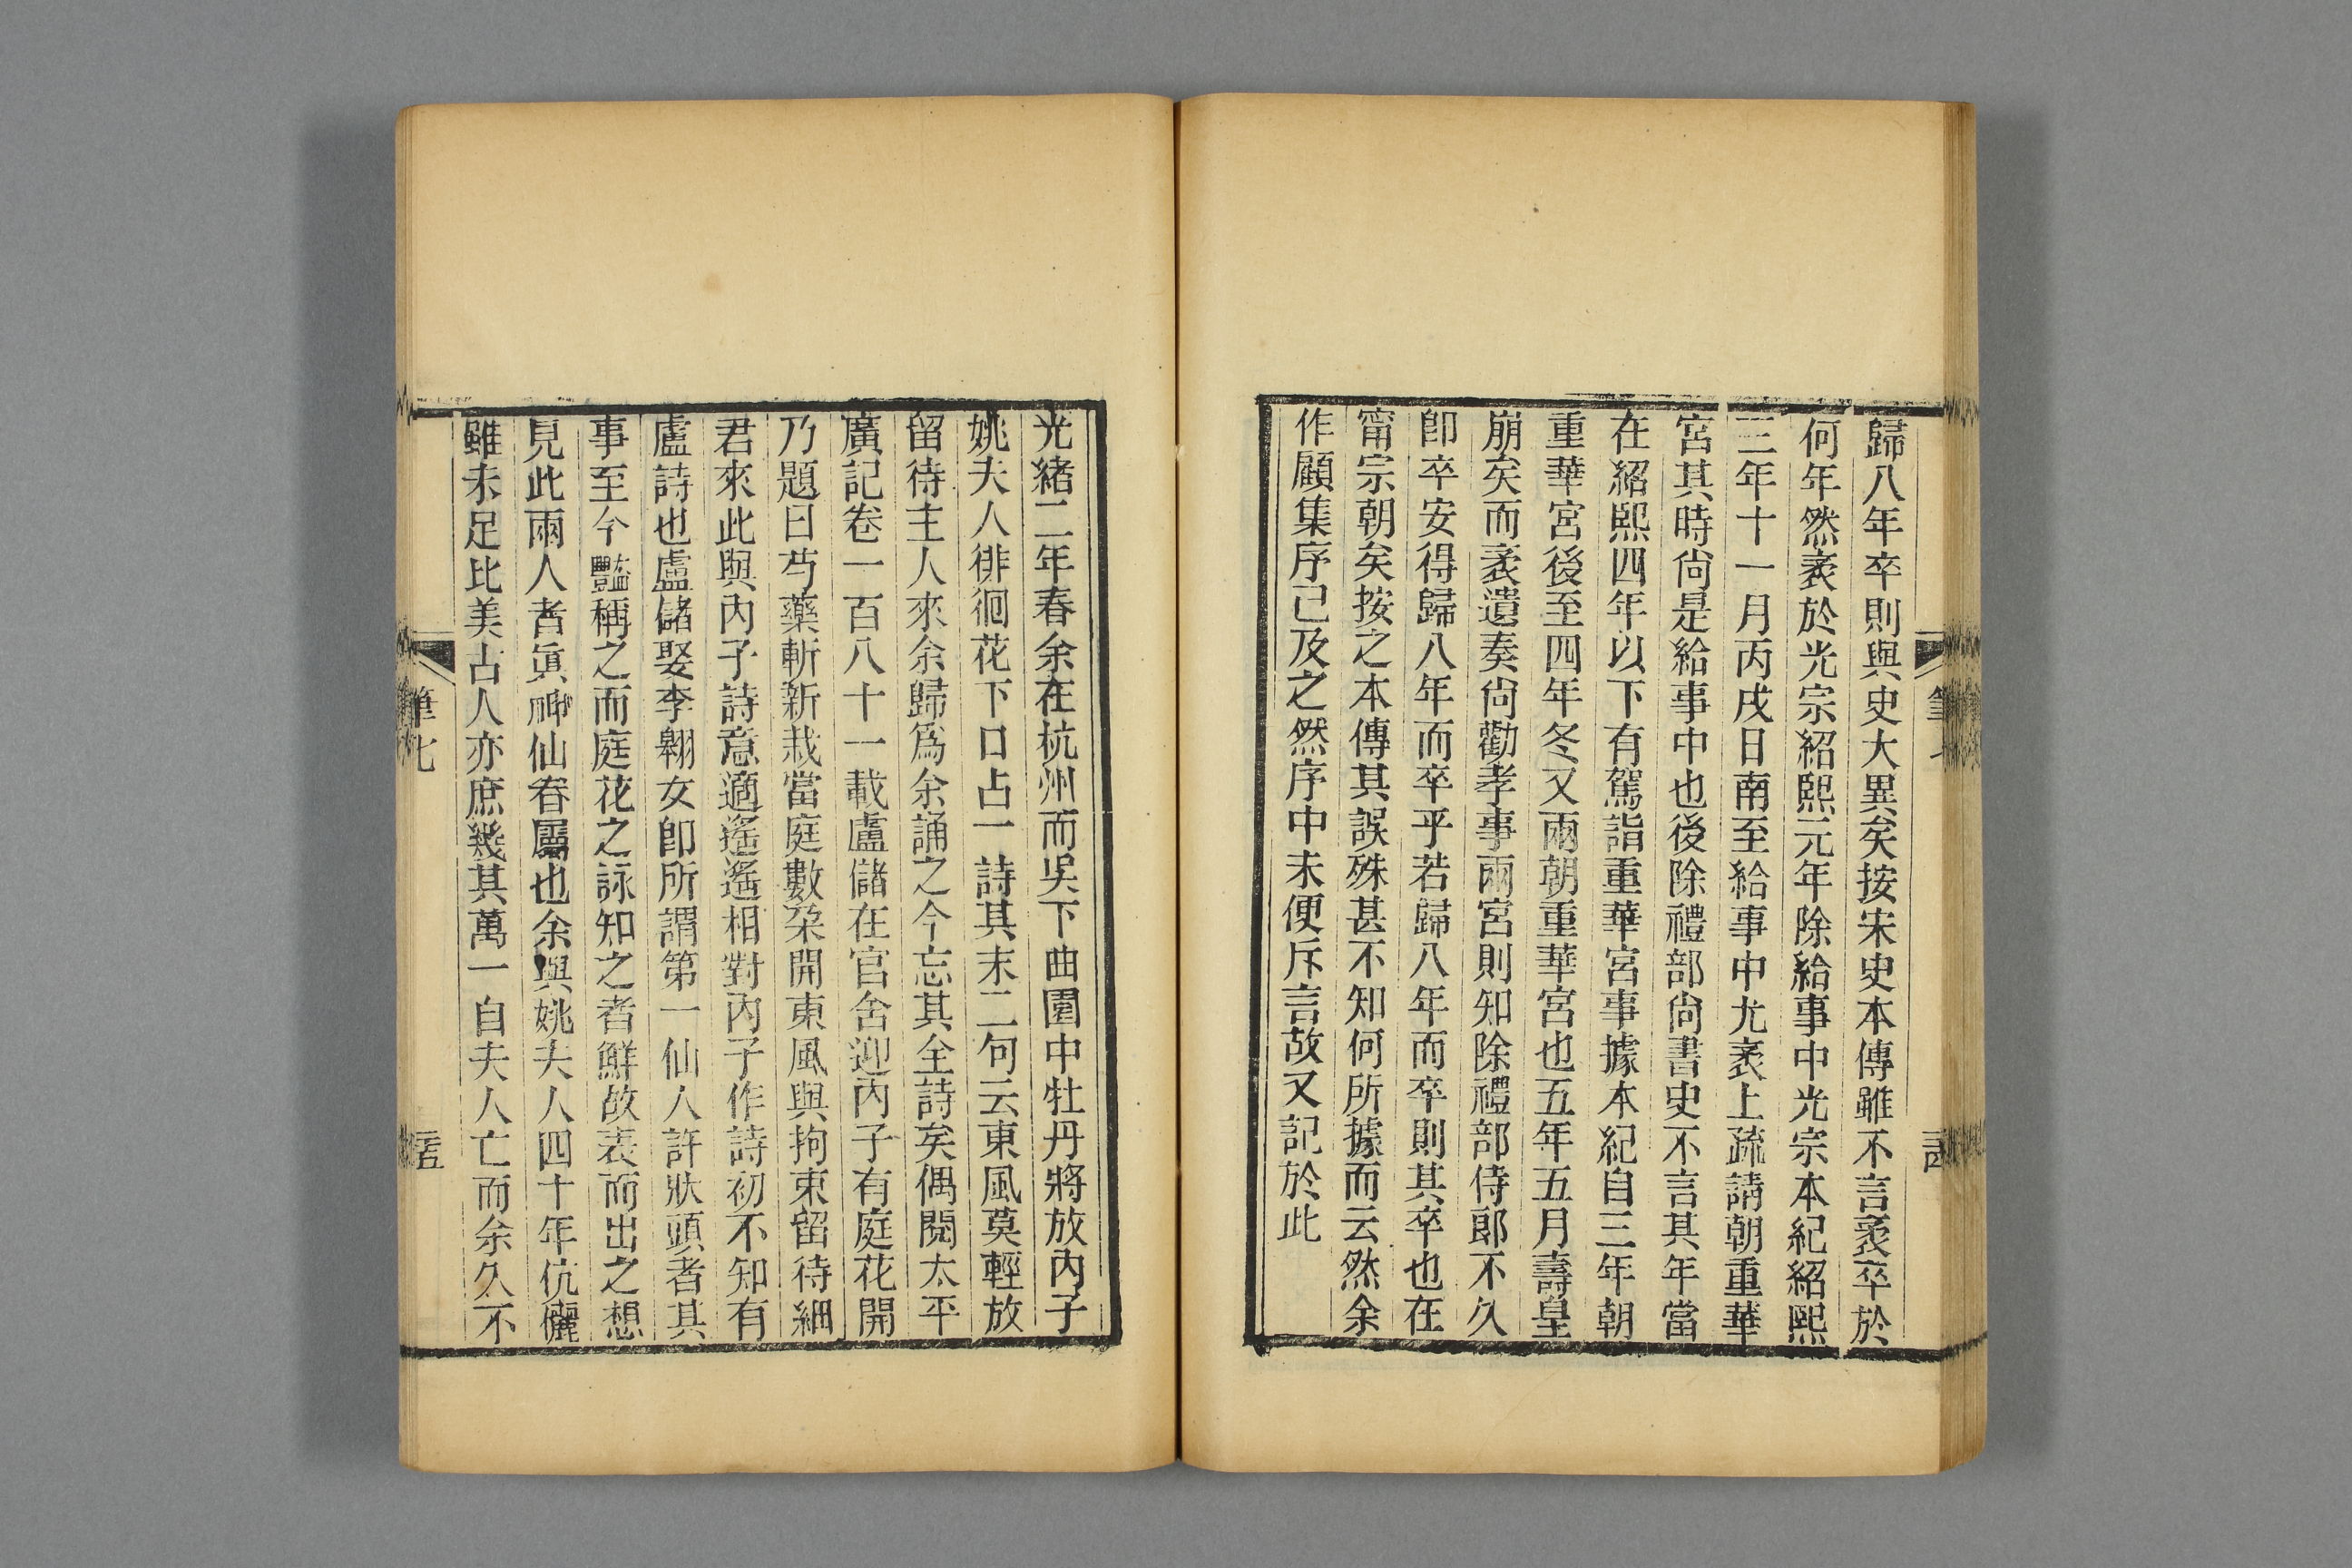 歸八年卒則與史大異矣按宋史本傳雖不言袤卒於
何年然袤於光宗紹熙元年除給事中光宗本紀紹熙
三年十一月丙戌日南至給事中尤袤上疏請朝重華
宮其時尙是給事中也後除禮部尙書史不言其年當
在紹熙四年以下有駕詣重華宮事據本紀自三年朝
重華宮後至四年冬又兩朝重華宮也五年五月壽皇
崩矣而袤遺奏尙勸孝事兩宮則知除禮部侍郎不久
卽卒安得歸八年而卒乎若歸八年而卒則其卒也在
甯宗朝矣按之本傳其誤殊甚不知何所據而云然余
作顧集序已及之然序中未便斥言故又記於此
筆七
光緒二年春余在杭州而吳下曲園中牡丹將放內子
姚夫人徘徊花下口占一詩其末二句云東風莫輕放
留待主人來余歸爲余誦之今忘其全詩矣偶閱太平
廣記卷一百八十一載盧儲在官舍迎內子有庭花開
乃題曰芍藥斬新栽當庭數朶開東風與拘束留待細
君來此與內子詩意適遙遙相對內子作詩初不知有
盧詩也盧儲娶李翱女卽所謂第一仙人許狀頭者其
事至今豔稱之而庭花之詠知之者鮮故表而出之想
見此兩人者眞神仙眷屬也余與姚夫人四十年伉儷
雖未足比美古人亦庶幾其萬一自夫人亡而余久不
筆七